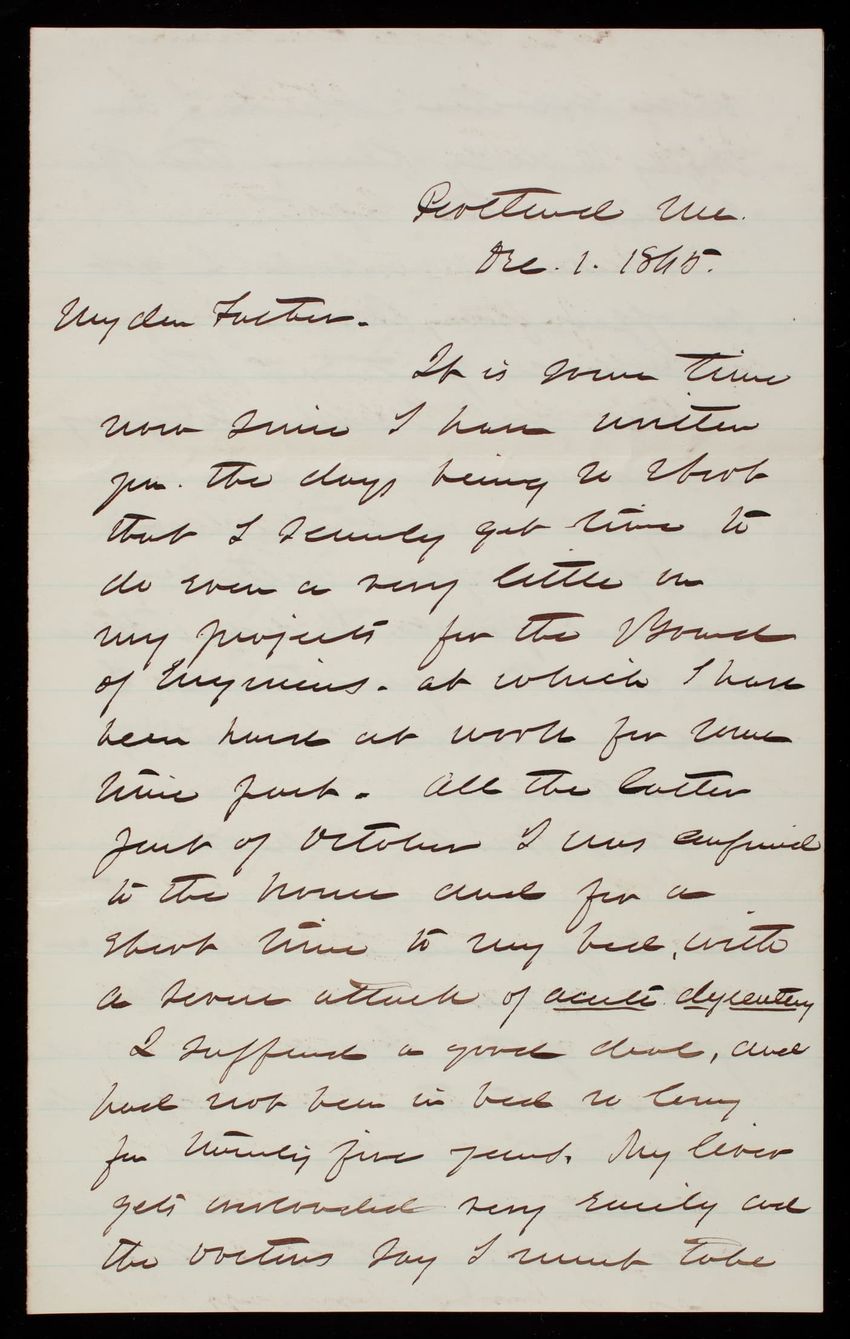 Portland Me.
Dec. 1. 1865.
My dear Father.
It is some time
now since I have written
you. the days being so short
that I scarcely get time to
do even a very little on
my projects for the Board
of Engineers. at which I have
been hard at work for some
time past. All the latter
part of October I was confined
to the house and for a
short time to my bed, with
a severe attack of acute dysentery
I suffered a good deal, and
had not been in bed so long
for twenty five years. My liver
gets overloaded very easily and
the doctors say I must take